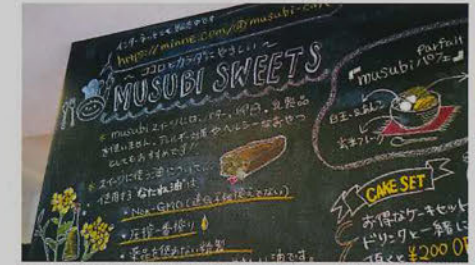 インターネットでも
https://minne.com/@musubi-cafe
～ココロとカラダにやさしい～
MUSUBI SWEETS
* musubiスイーツには、バター、卵、乳製品
を使いません。アレルギー対策やヘルシーなおやつ
としてもおすすめです！
* スイーツに使う油について…
使用する"なたね油"は
・Non-GMO(遺伝子組換えでない)
・圧搾一番搾り
・薬品を使わない精製
油です。
parfait
『musubiパフェ』
白玉
玄米フレーク
CAKE SET
お得なケーキセット
ドリンクと一緒に
頂くと¥200 OF